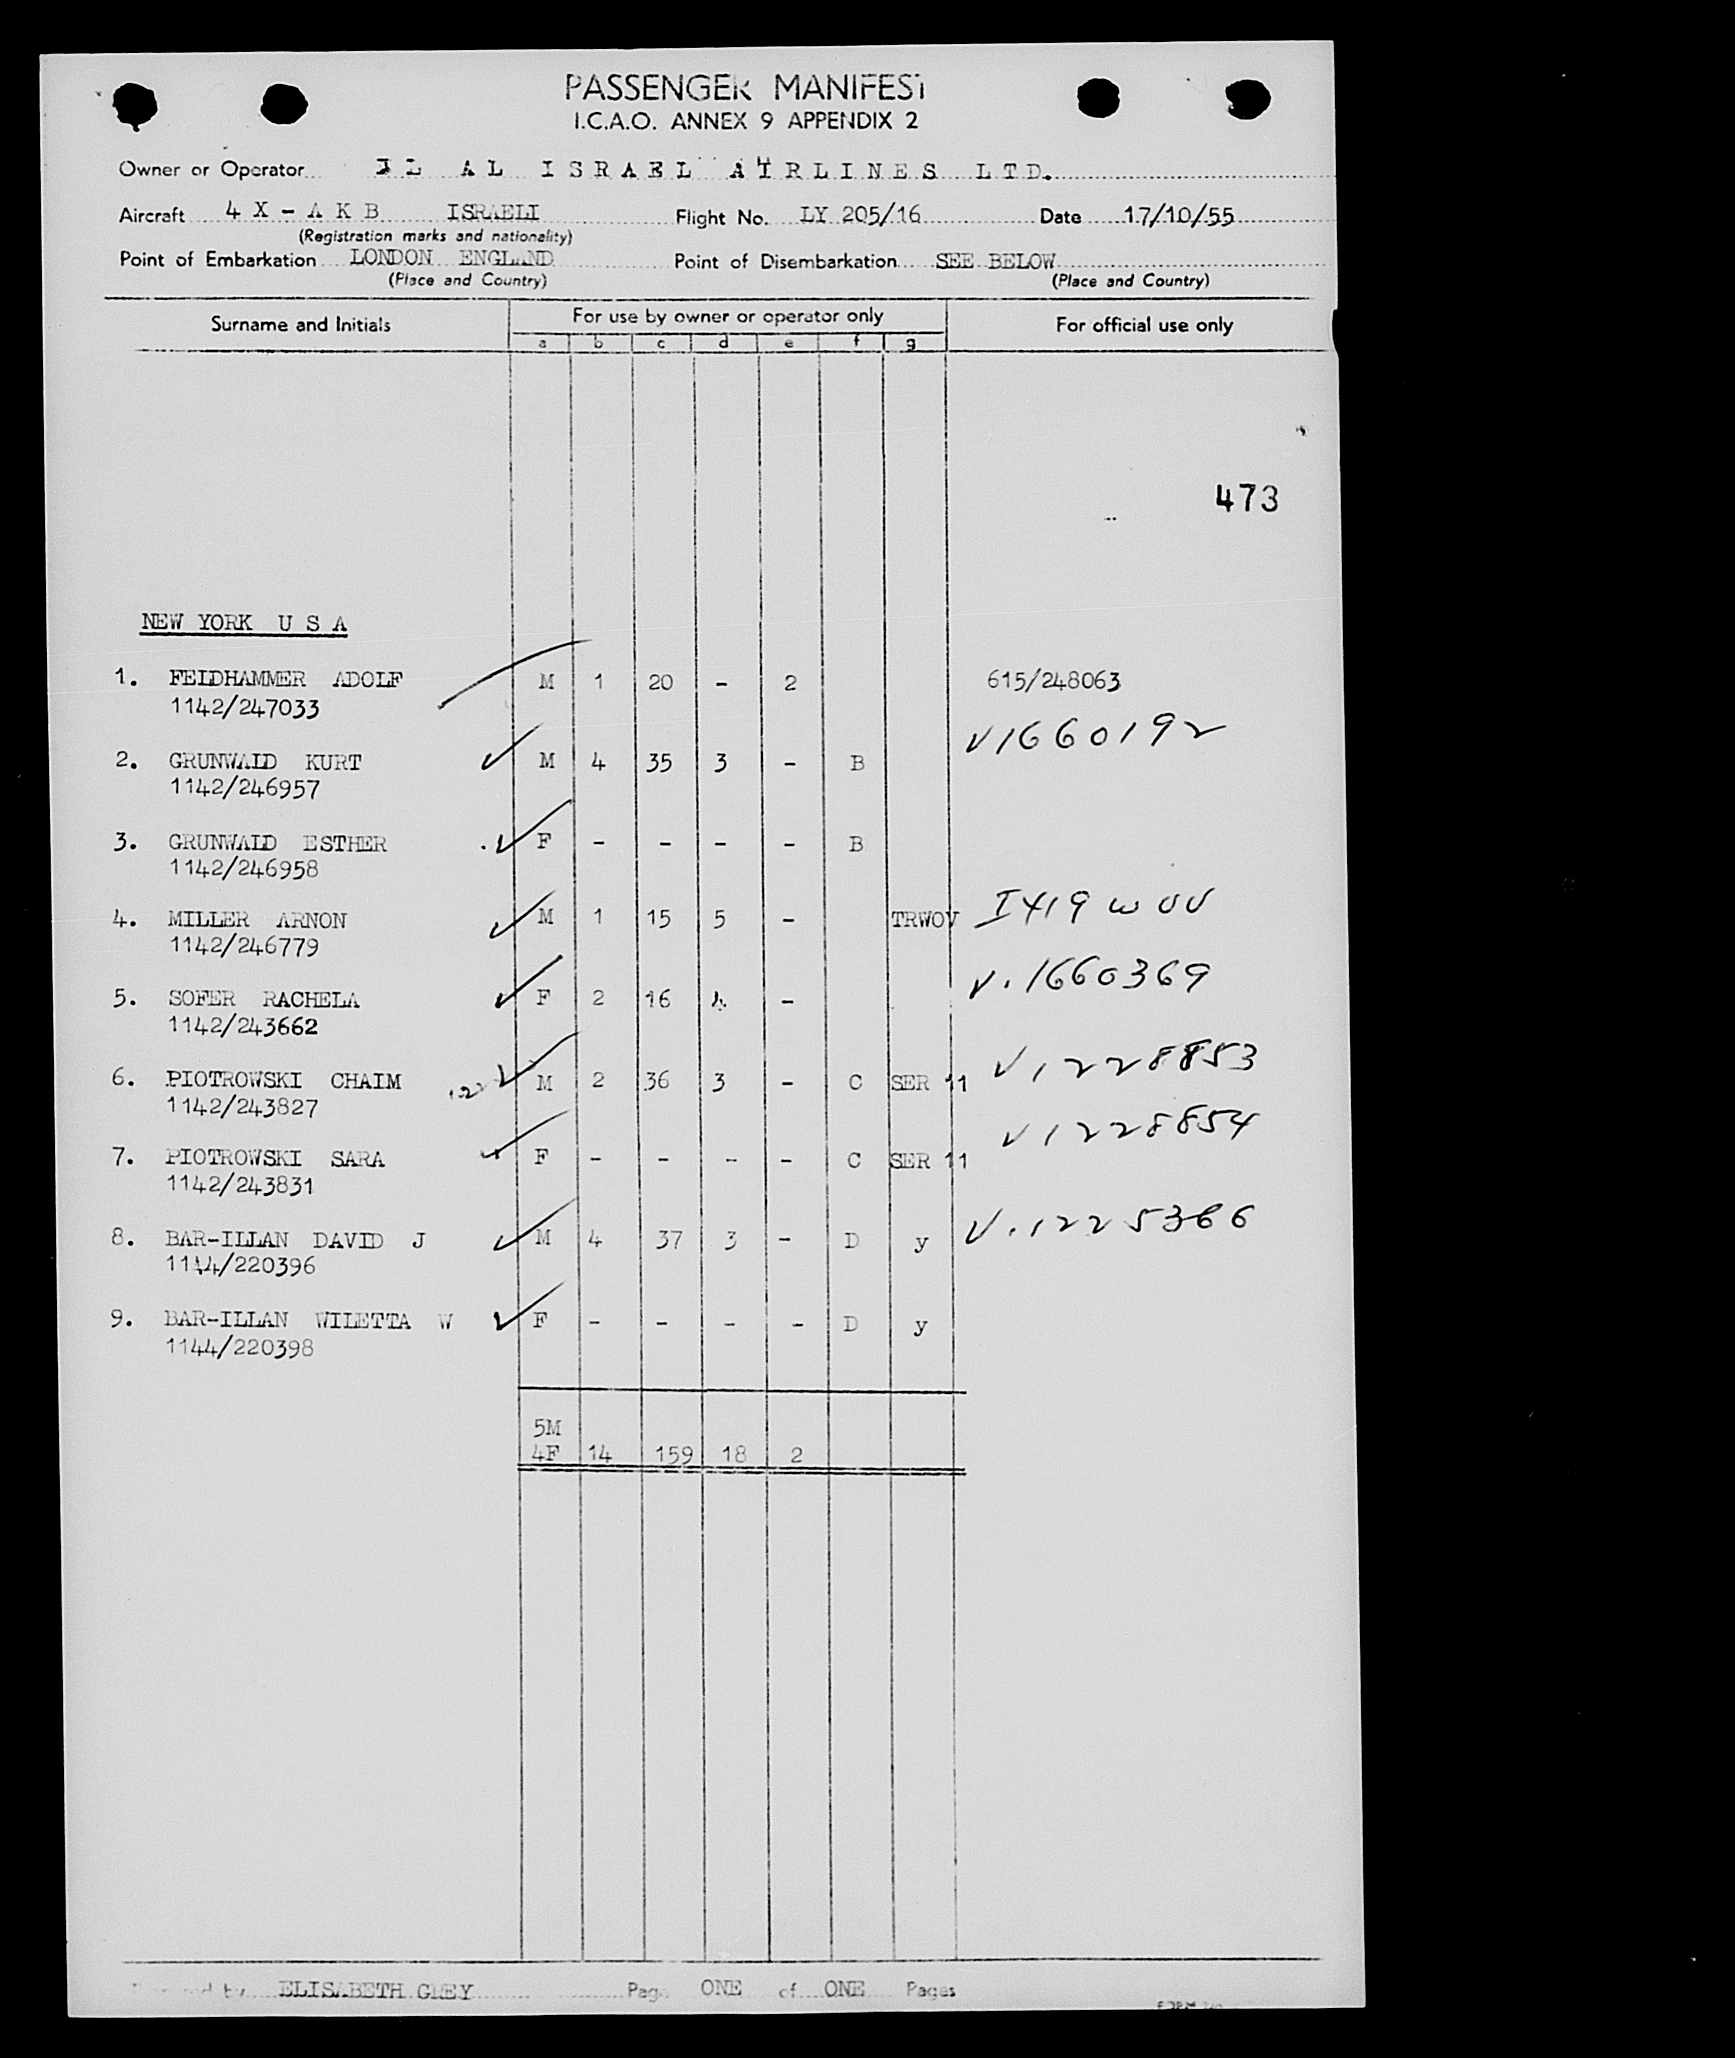 PASSENGER MANIFEST
I.C.A.O. ANNEX 9 APPENDIX 2
Owner or Operator EL AL ISRAEL AIRLINES LTD.
Aircraft 4X-AKB ISRAELI Flight No. LY 205/16 Date 17/10/55
(Registration marks and nationality)
Point of Embarkation LONDON ENGLAND Point of Disembarkation SEE BELOW
(Place and Country) (Place and Country)
Surname and Initials For use by owner or operator only For official use only
a b c d e f g
473
NEW YORK U S A
1. FEIDHAMMER ADOLF M 1 20 - 2 615/248063
1142/247033
V1660192
2. GRUNWALD KURT M 4 35 3 - B
1142/246957
3. GRUNWALD ESTHER F - - - - B
1142/246958
4. MILLER ARNON M 1 15 5 - TRWOV I419
1142/246779
V.1660369
5. SOFER RACHELA F 2 16 4 -
1142/243662
6. PIOTROWSKI CHAIM M 2 36 3 - C SER 11 V1228853
1142/243827
7. PIOTROWSKI SARA F - - - - C SER 11 V1228854
1142/243831
8. BAR-ILLAN DAVID J M 4 37 3 - D y V.1225366
1144/220396
9. BAR-ILLAN WILETTA W F - - - - D y
1144/220398
5M
4F 14 159 18 2
by ELISABETH GREY Page ONE of ONE Pages
FORM